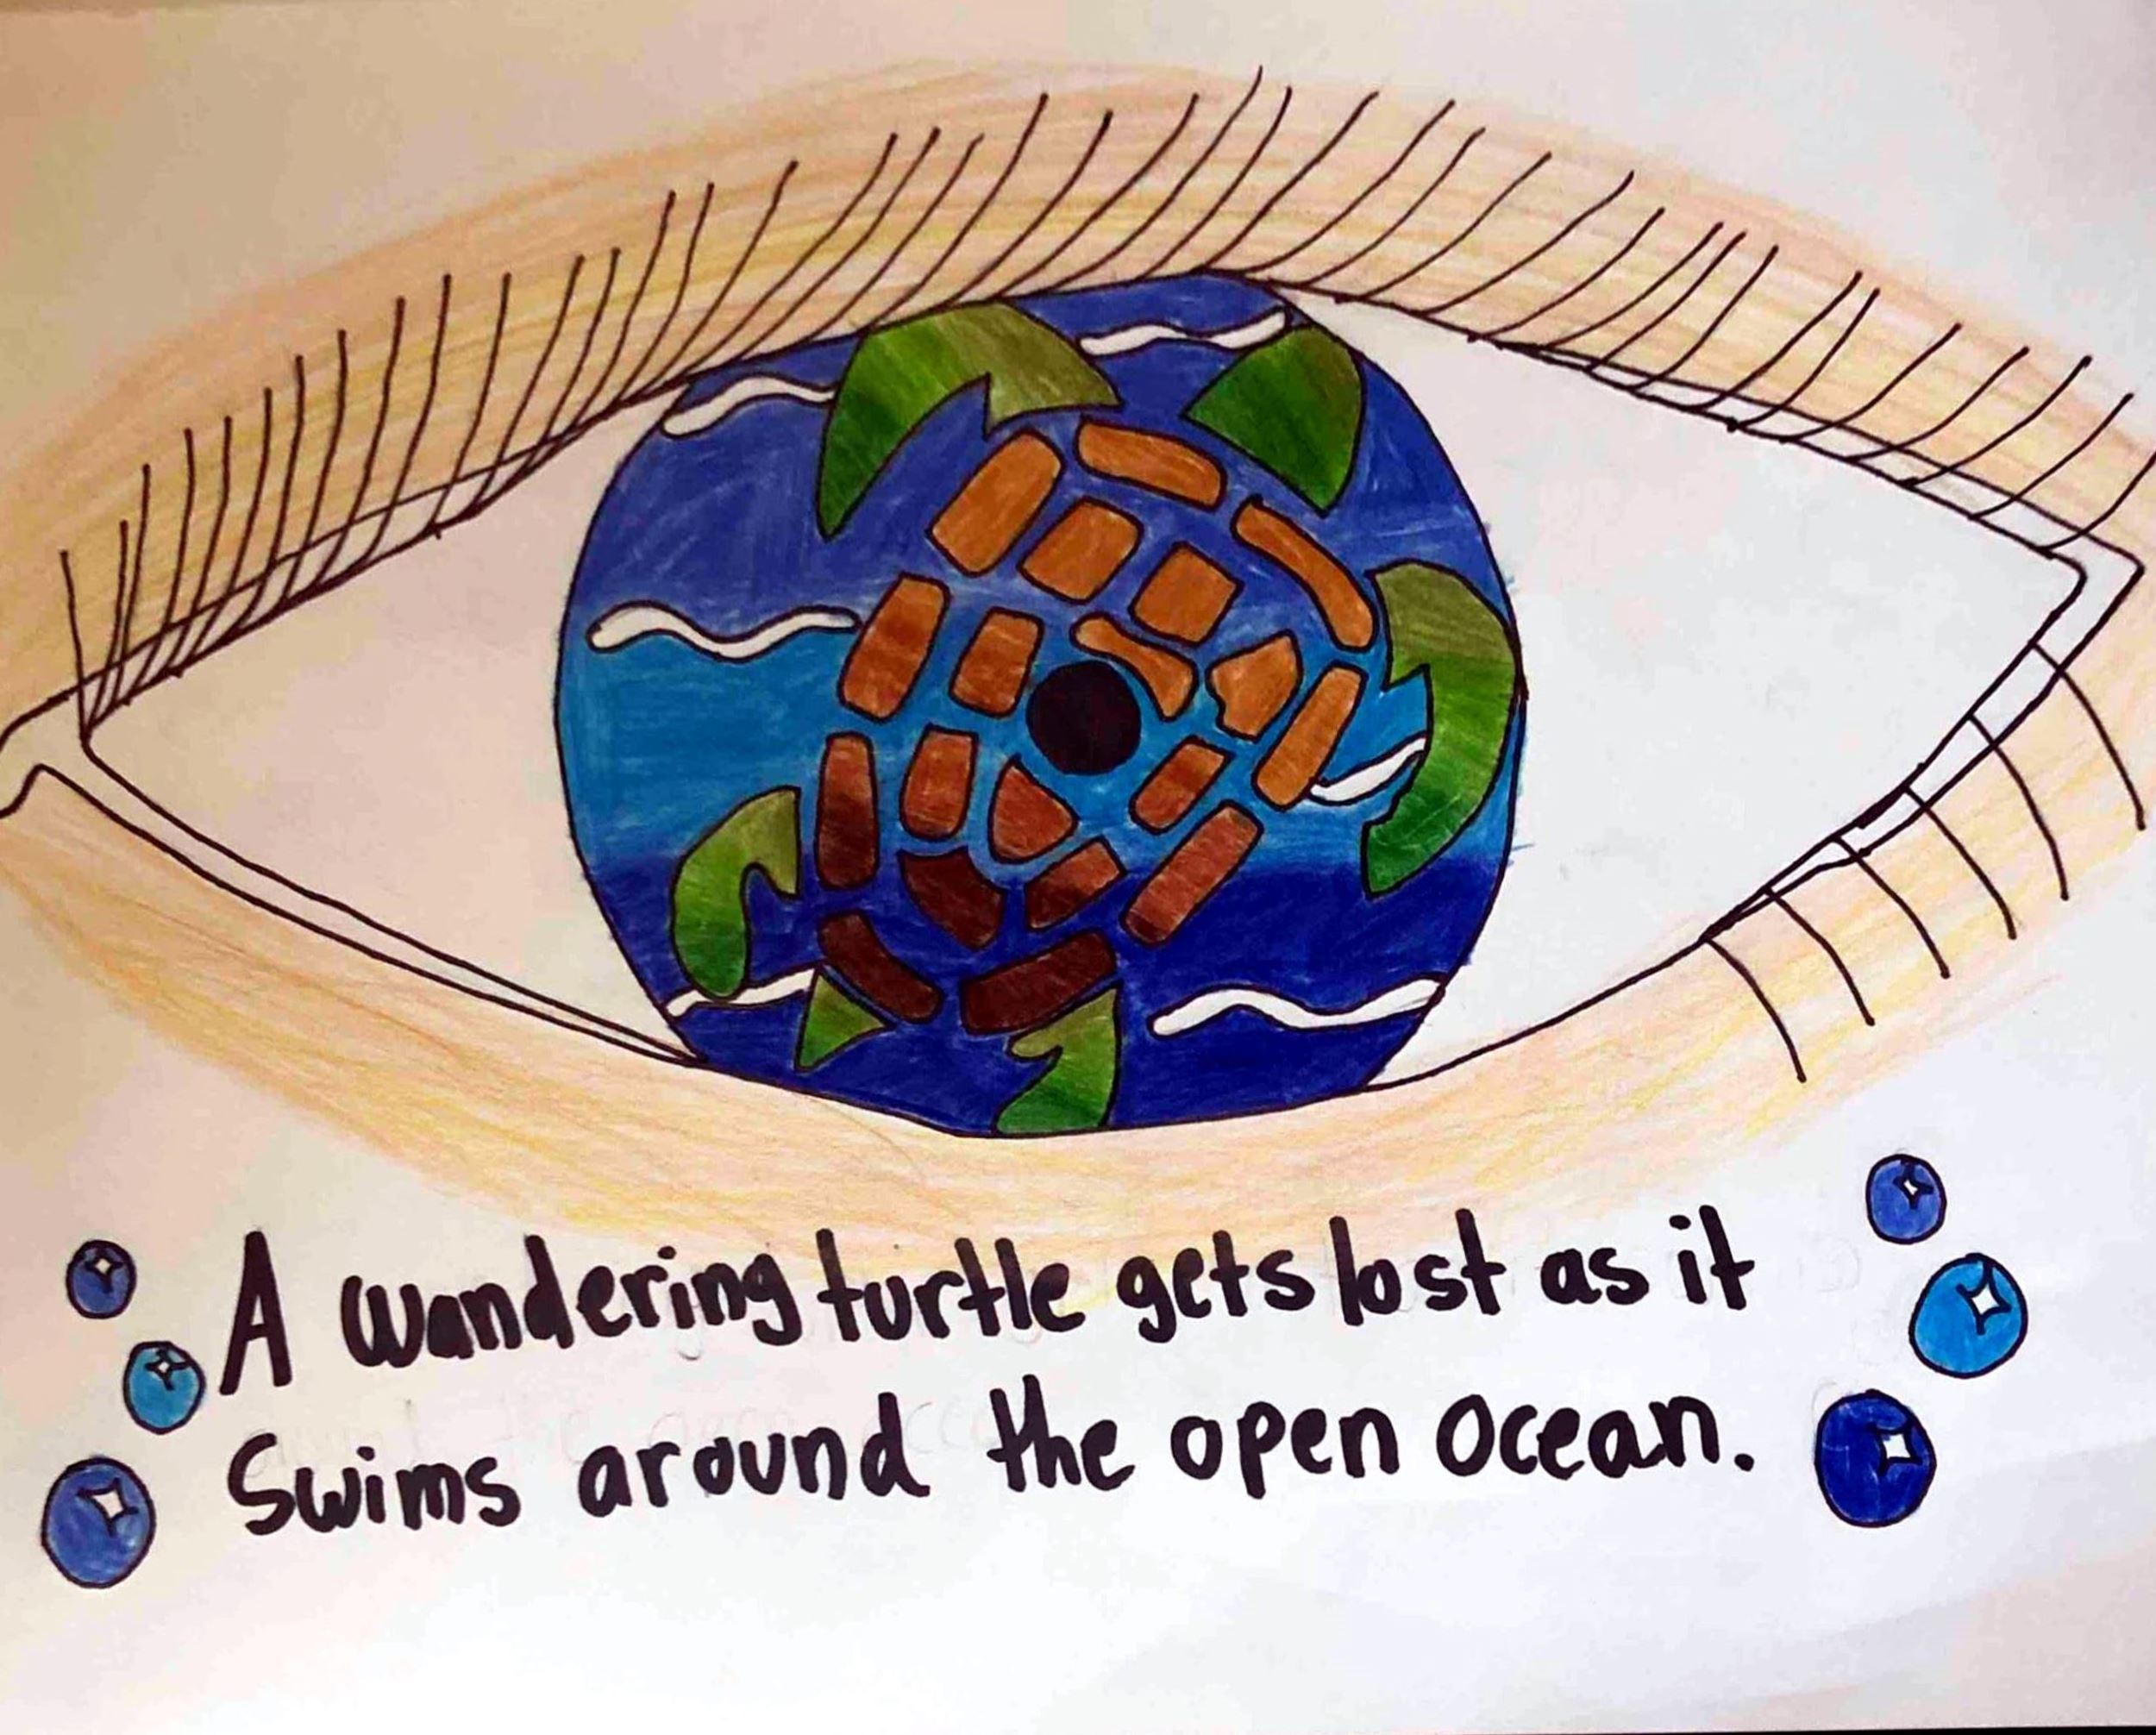 A wandering turtle gets lost as it
Swims around the open ocean.